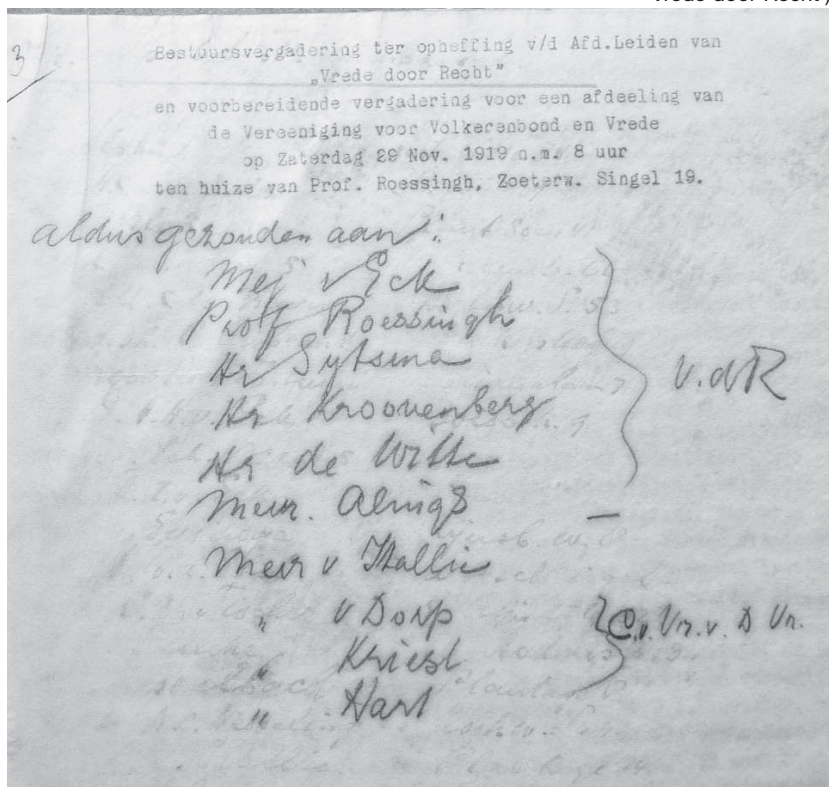 Vrede door Recht)
3
Bestuursvergadering ter opheffing v/d Afd.Leiden van
„Vrede door Recht”
en voorbereidende vergadering voor een afdeeling van
de Vereeniging voor Volkerenbond en Vrede
op Zaterdag 29 Nov. 1919 n.m. 8 uur
ten huize van Prof. Roessingh, Zoeterw. Singel 19.
aldus gezonden aan:
Mej v Eck
Prof Roessingh
Hr Sytsma
Hr Kroonenberg
Hr de Witte
v.dR
Mevr.
Mevr v Itallie
" v Dorp
" Kriest
" Hart
C.v. Vr. v. D Vr.